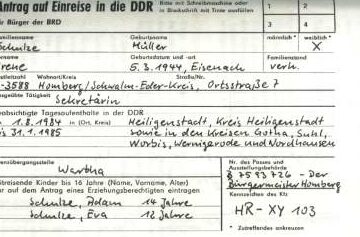 Antrag auf Einreise in die DDR
Bitte mit Schreibmaschine oder in Blockschrift mit Tinte ausfüllen
für Bürger der BRD
1 2
3 4
Familienname Geburtsname männlich* weiblich*
Schulze Müller X
Geburtsdatum und -ort Familienstand
Irene 5.3.1944, Eisenach verh.
Postleitzahl Wohnort/Kreis Straße/Nr.
-3588 Homberg/Schwalm-Eder-Kreis, Ortsstraße 7
ausgeübte Tätigkeit
Sekretärin
beabsichtigte Tagesaufenthalte in der DDR
1.8.1984 in (Ort, Kreis) Heiligenstadt, Kreis Heiligenstadt
bis 31.1.1985 sowie in den Kreisen Gotha, Suhl,
Worbis, Wernigerode und Nordhausen
Grenzübergangsstelle
Wartha
Nr. des Passes und Ausstellungsbehörde
G 7593726 - Der
Bürgermeister Homberg
Mitreisende Kinder bis 16 Jahre (Name, Vorname, Alter)
nur auf dem Antrag eines Erziehungsberechtigten eintragen
Kennzeichen des Kfz
Schulze, Adam 14 Jahre
HR-XY 103
Schulze, Eva 12 Jahre
* Zutreffendes ankreuzen